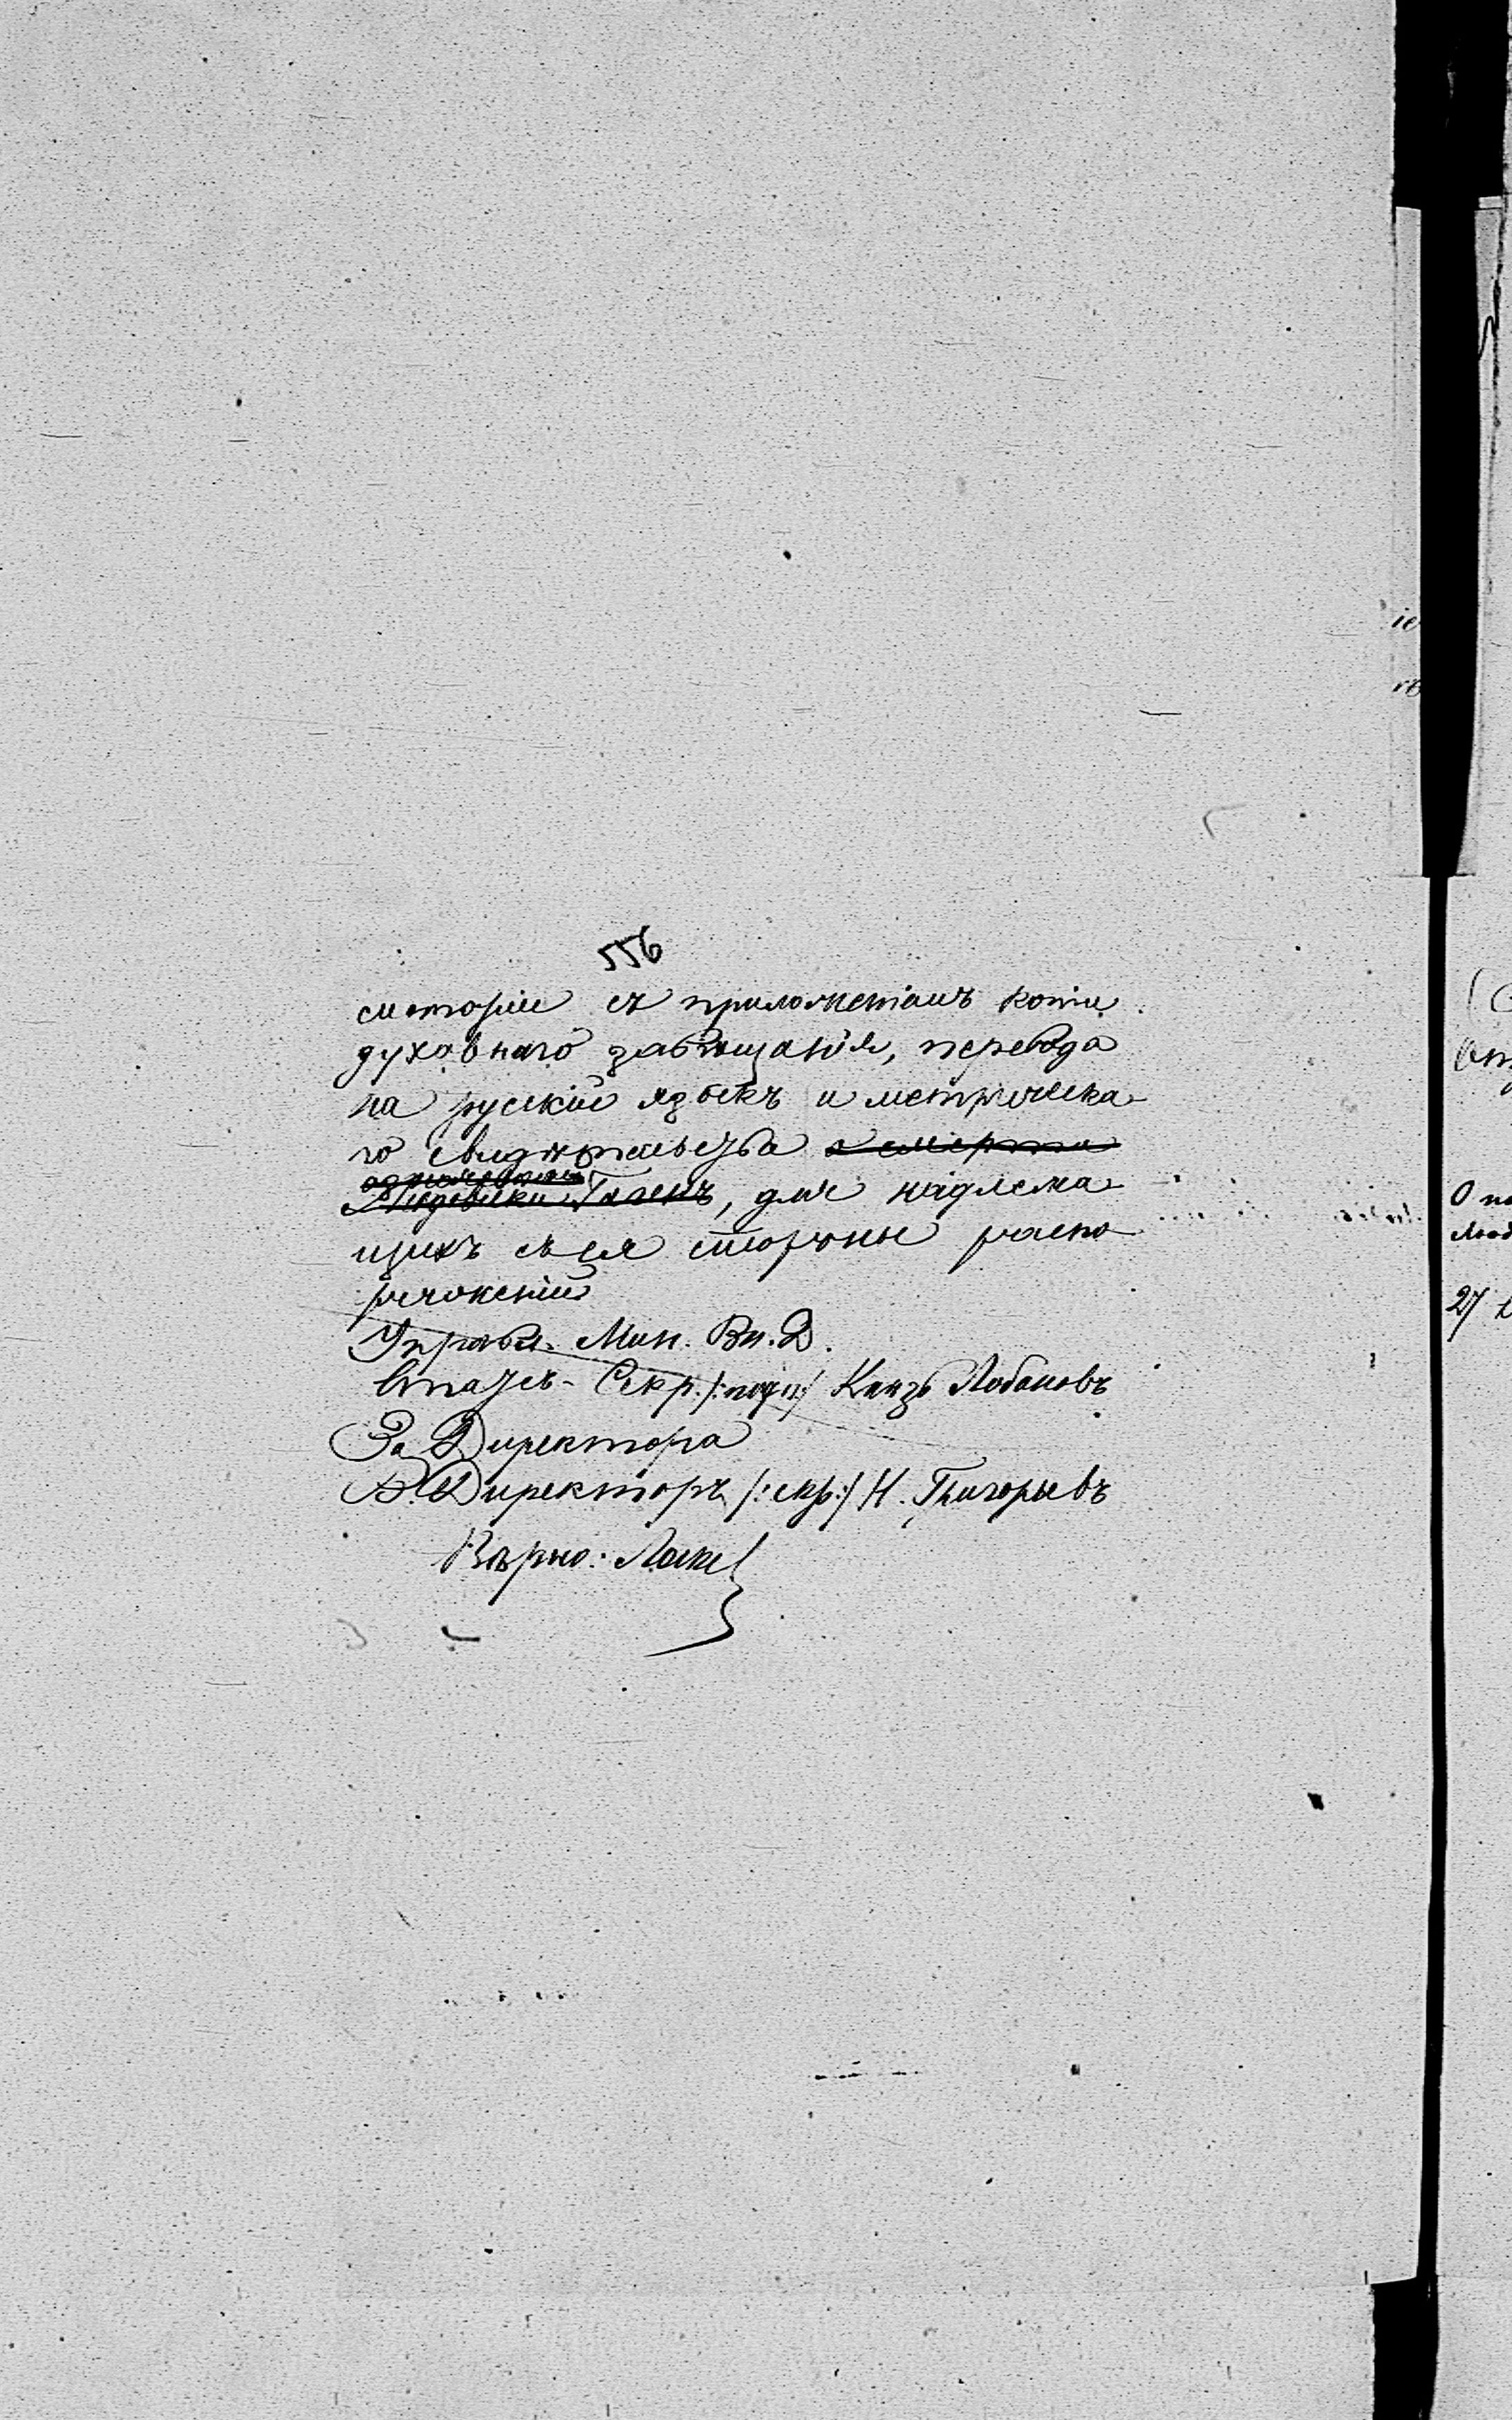 556
систоріи съ приложеніемъ копіи
духовнаго завѣщанія, перевода
на русскій языкъ и метрическа
го свидѣтельства о смерти
Людовики Гагенъ, для надлежа
щихъ съ ея стороны распо
ряженій
Управл. Мин. Вн. Д.
Статсъ-Секр. /:подп:/ Князь Лобановъ
За Директора
В. Директоръ /:скр:/ Н. Григорьевъ
Вѣрно:
27